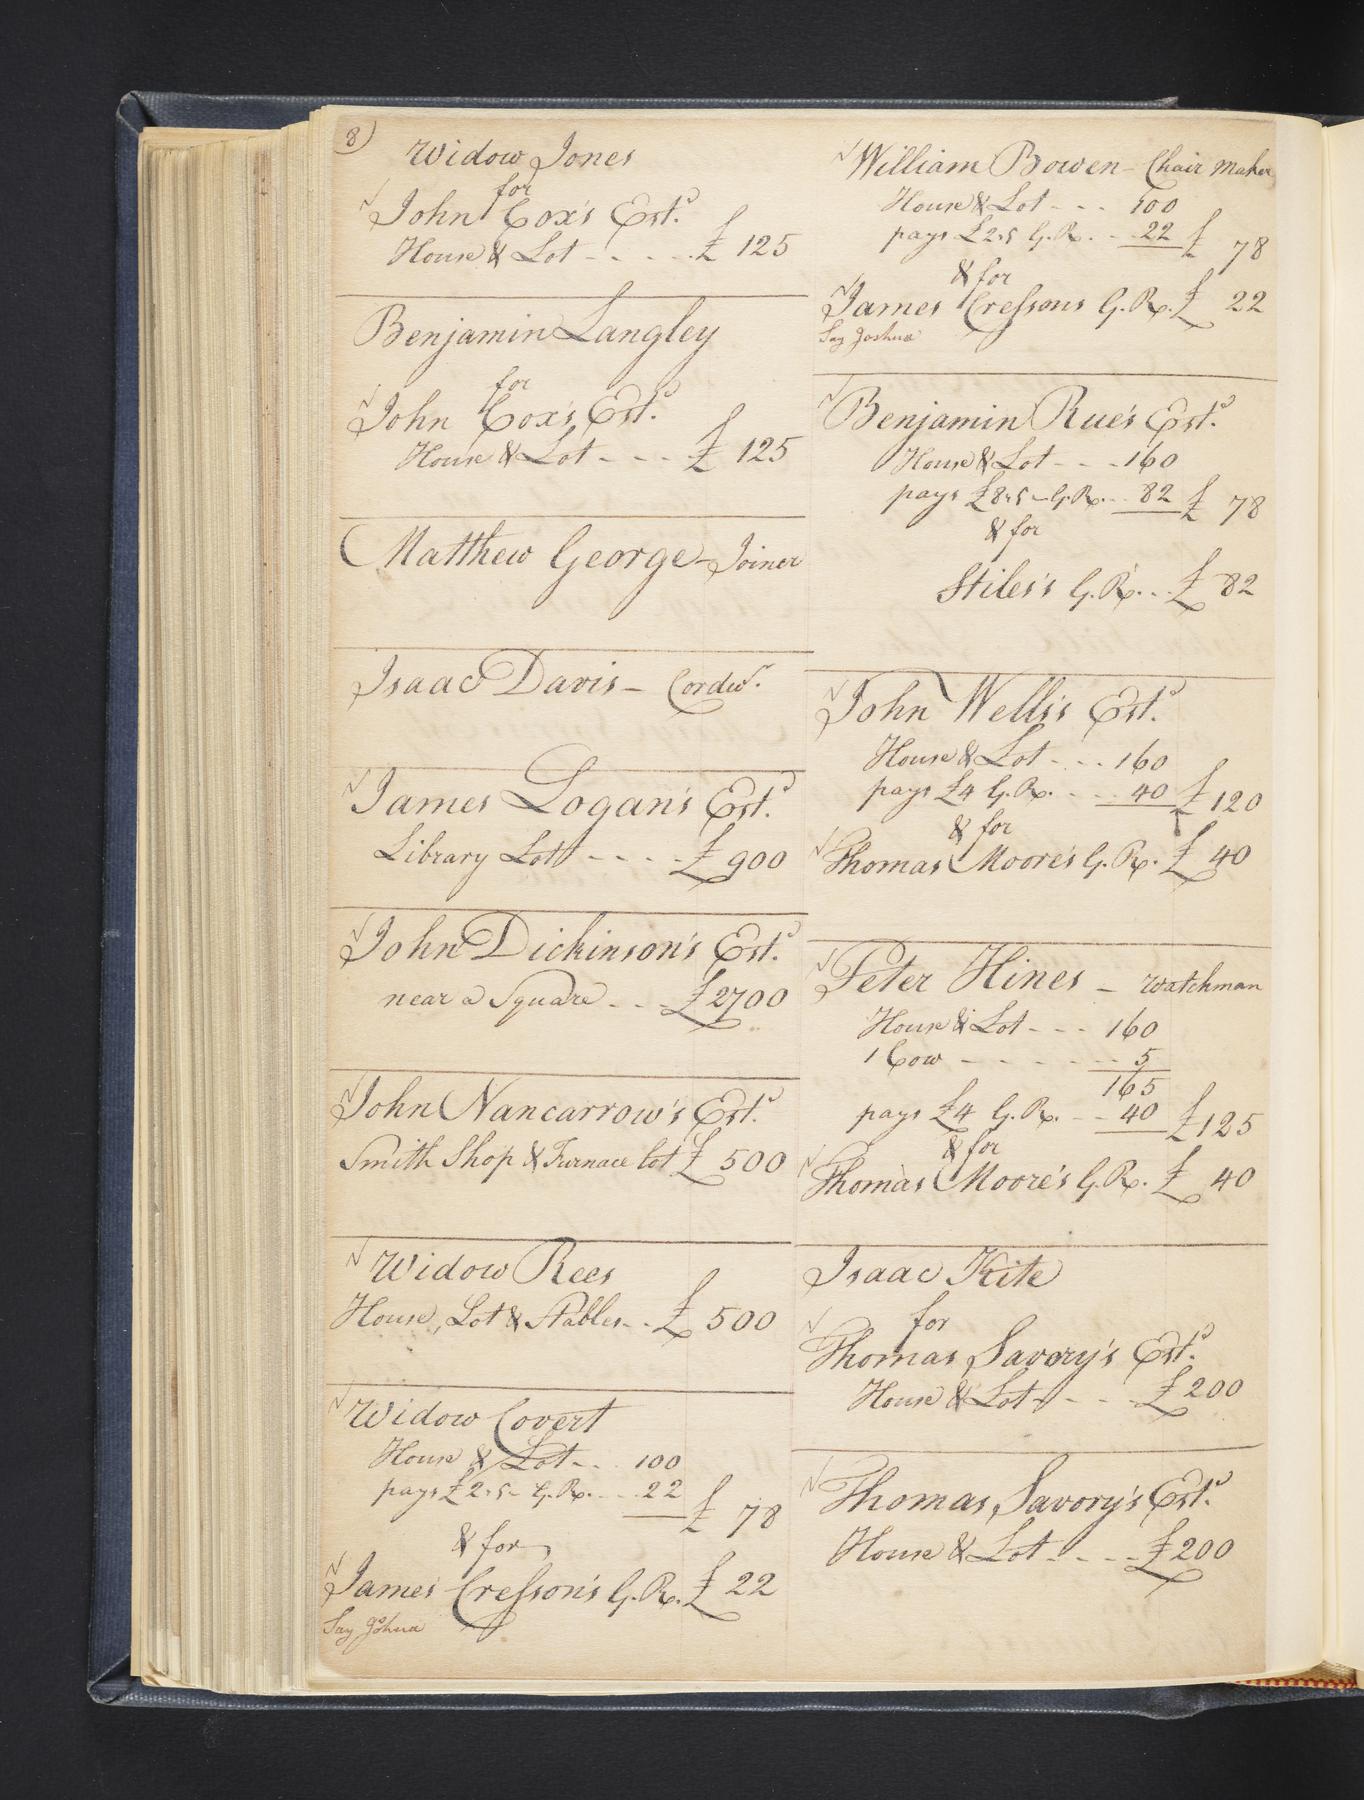 8)
Widow Jones
for
John Cox's Estd
House & Lot - - - - - £ 125
Benjamin Langley
for
John Cox's Estd
House & Lot - - - £ 125
Matthew George - Joiner
Isaac Davis - Cordwr.
James Logan's Estd
Library Lott - - - - £ 900
John Dickinson's Estd
near a Square - - - £ 2700
John Nancarrow's Estd
Smith Shop & Furnace lot £ 500
Widow Rees
House, Lot & Stables - - £ 500
Widow Covert
House & Lot - - 100
pays £2,,5 - G. R. - - - 22 £ 78
& for
James Cresson's G. R. £ 22
Say Joshua
William Bowen - Chair Maker
House & Lot - - - 100
pays £2,,5 G. R. - - 22 £ 78
& for
James Cressons G. R. £ 22
Say Joshua
Benjamin Rue's Estd
House & Lot - - - 160
pays £8,,5 - G. R. - - 82 £ 78
& for
Stiles's G. R. - - £ 82
John Wells's Estd
House & Lot - - - 160
pays £4 G. R. - - - 40 £ 120
& for
Thomas Moore's G. R. £ 40
Peter Hines - Watchman
House & Lot - - - 160
1 Cow - - - - - - - 5
165
pays £4 G. R. - - 40 £ 125
& for
Thomas Moore's G. R. £ 40
Isaac Kite
for
Thomas Savory's Estd
House & Lot - - - £ 200
Thomas Savory's Estd
House & Lot - - - - £ 200